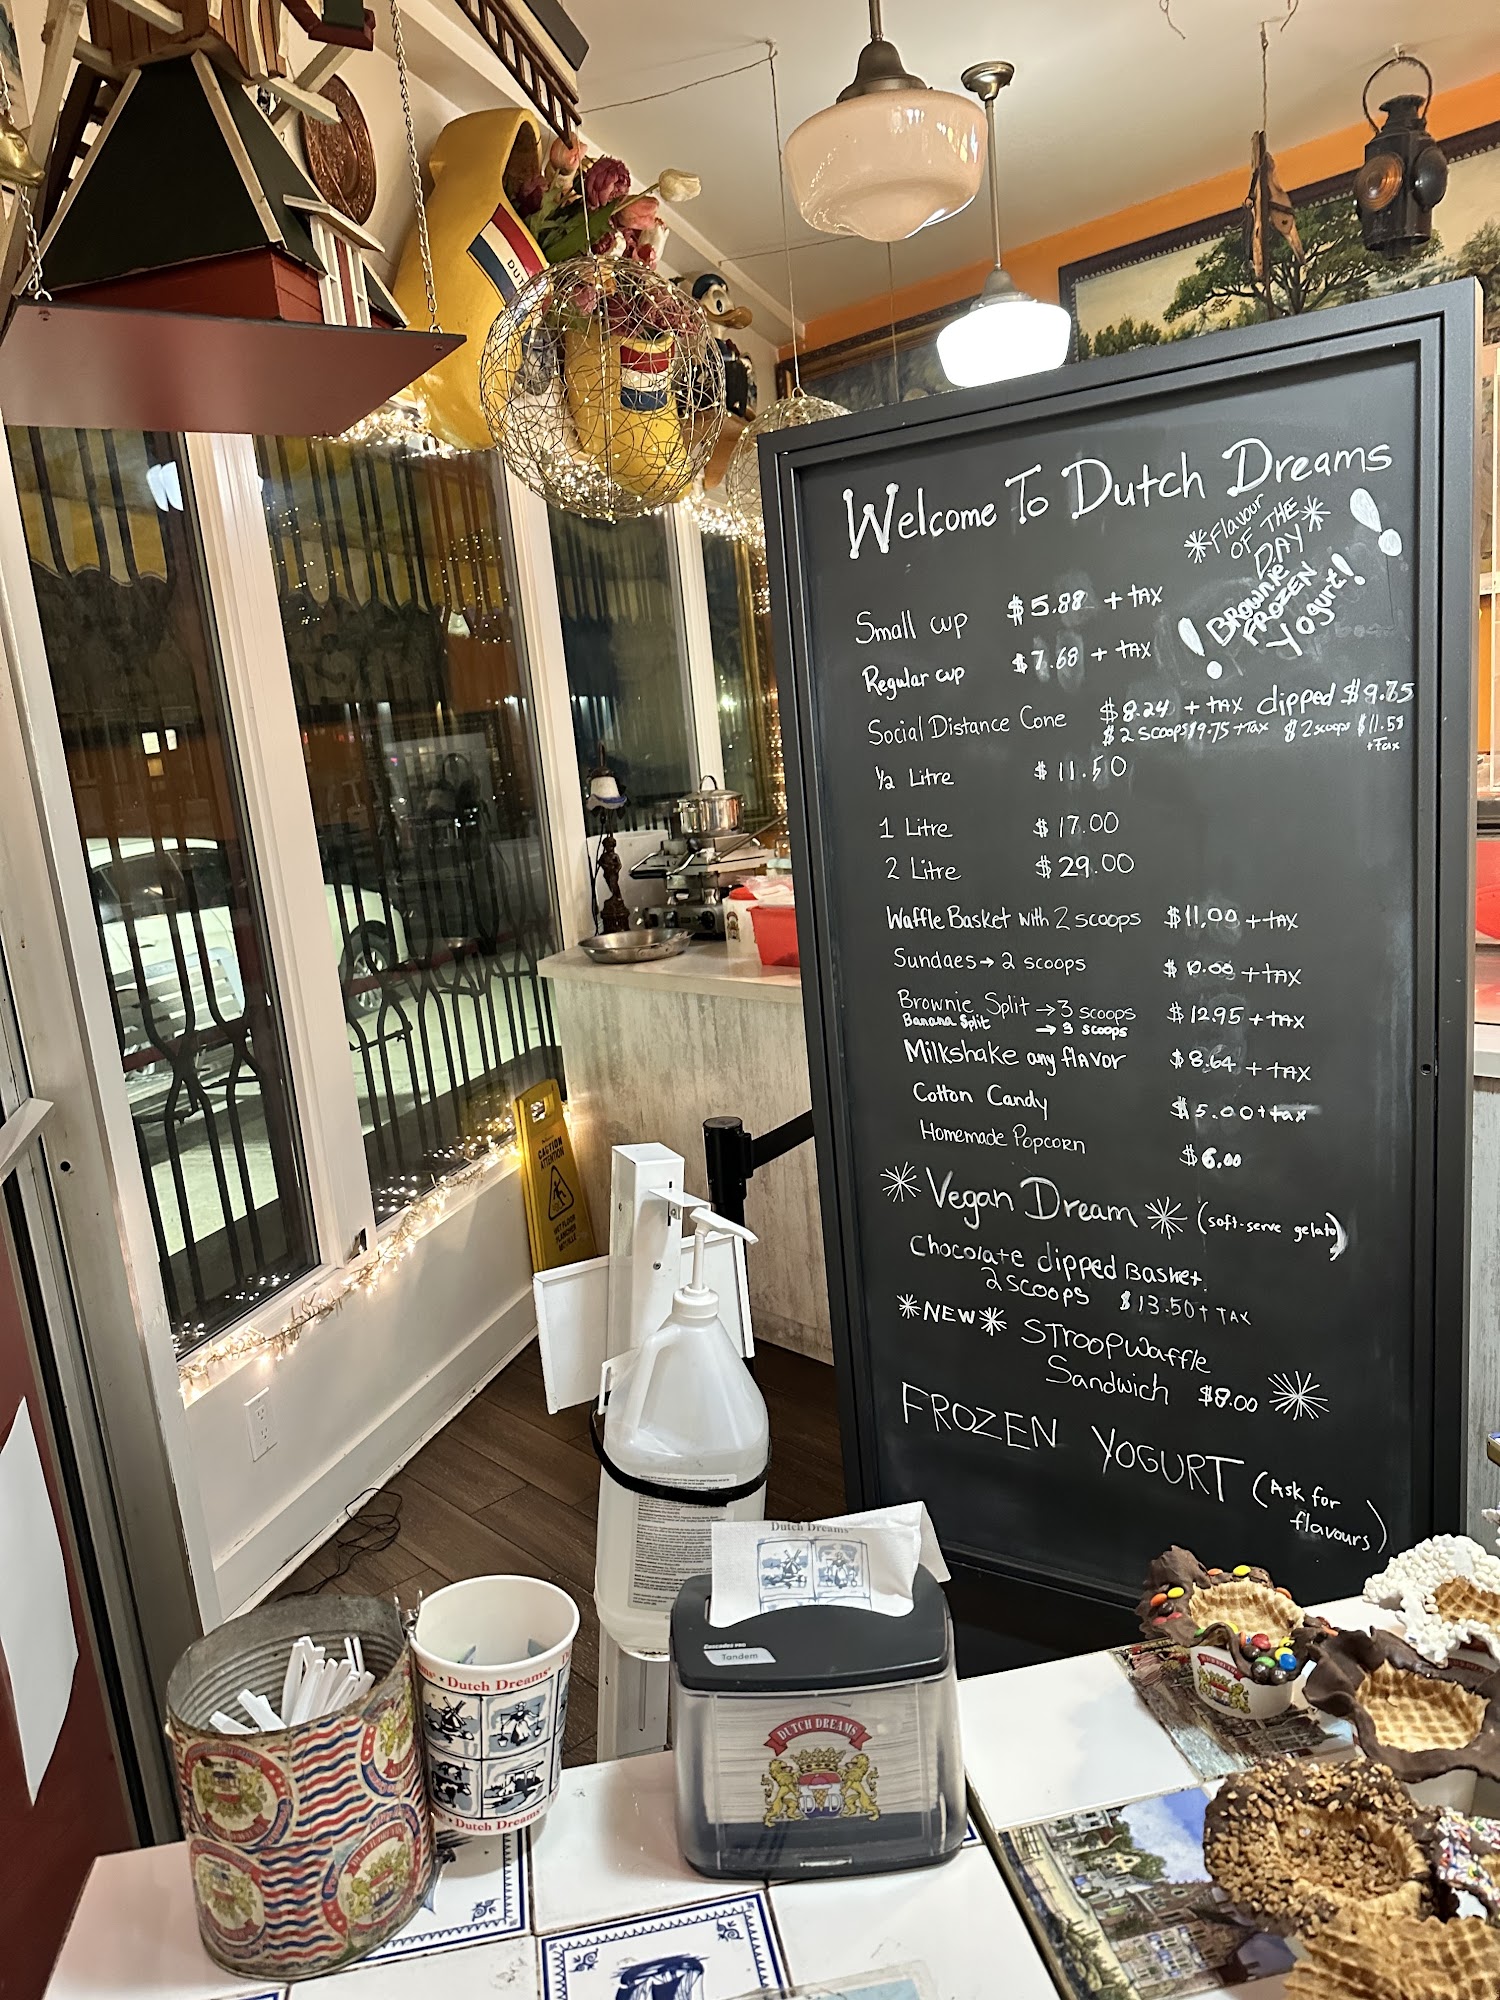 Welcome To Dutch Dreams
*Flavour
OF THE
DAY*
! BROWNIE
FROZEN
Yogurt!
Small cup $5.88 + TAX
Regular cup $7.68 + TAX
Social Distance Cone $8.24 + TAX dipped $9.75
$ 2 scoops $9.75 + Tax $ 2 scoops $11.58
+ Tax
1/2 Litre $11.50
1 Litre $17.00
2 Litre $29.00
Waffle Basket with 2 scoops $11.00 + TAX
Sundaes → 2 scoops + TAX
Brownie Split → 3 scoops $12.95 + TAX
Banana Split → 3 scoops
Milkshake any flavor $8.64 + TAX
Cotton Candy $5.00 + tax
Homemade Popcorn $6.00
*Vegan Dream* (soft-serve gelato)
Chocolate dipped Basket.
2 scoops $13.50 + TAX
*NEW* STROOPWAFFLE
Sandwich $8.00
FROZEN YOGURT (Ask for
flavours)
CAUTION
ATTENTION
WET FLOOR
PLANCHER
MOUILLÉ
Dutch Dreams
Tandem
DUTCH DREAMS
D D
Dutch Dreams
Dutch Dreams